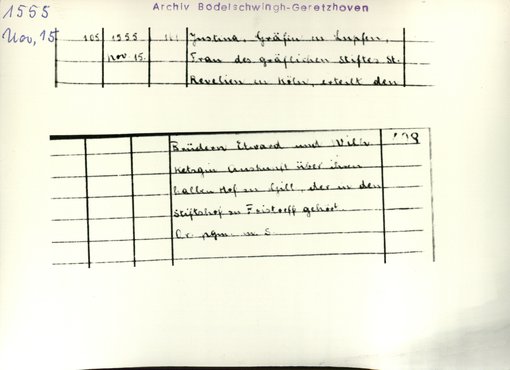 Archiv Bodelschwingh-Geretzhoven
1555
Nov, 15
105 1555 Justina, Gräfin zu Lupfen,
Nov. 15. Frau des gräflichen Stiftes St.
Revelien in Köln, erteilt den
Brüdern Edvard und Wilh.
Ketzgin Auskunft über ihren
halben Hof zu Gill, der in den
Stiftshof zu Fristorff gehört.
Or. pgm. m. S.